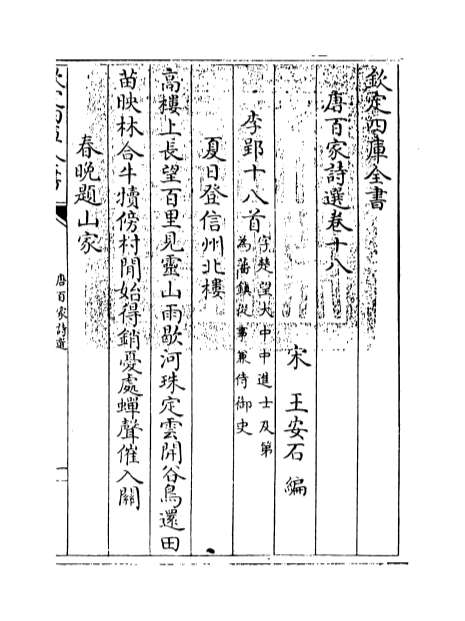 欽定四庫全書
唐百家詩選卷十八
宋 王安石 編
李郢十八首 字楚望大中中進士及第
為藩鎮從事兼侍御史
夏日登信州北樓
高樓上長望百里見靈山雨歇河珠定雲開谷鳥還田
苗映林合牛犢傍村閒始得銷憂處蟬聲催入關
春晚題山家
唐百家詩選